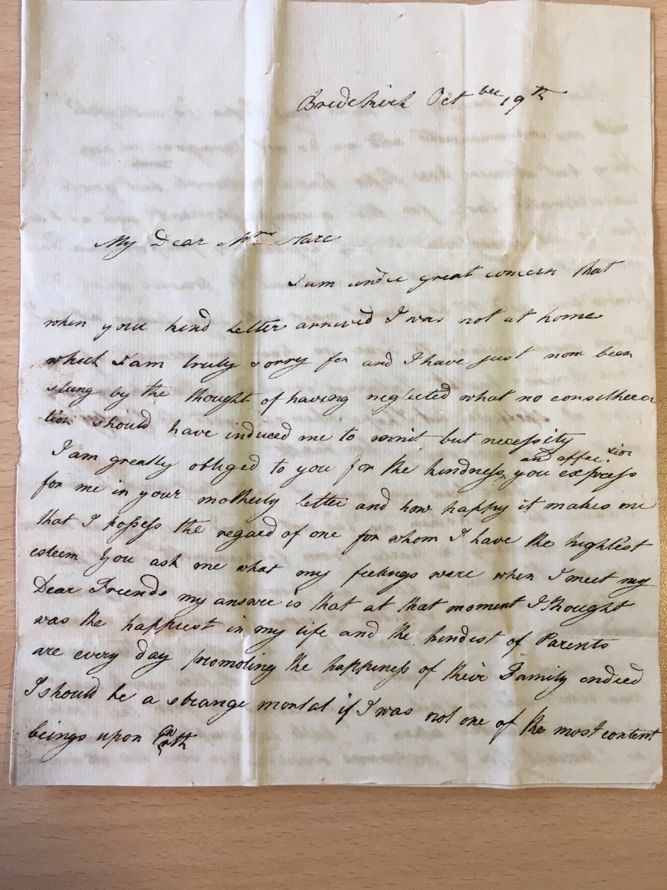 Oct ber 19th
My Dear Mrs
I am under great concern that
when your kind Letter arrived I was not at home
which I am truly sorry for and I have just now been
stung by the thought of having neglected what no considhera
tion should have induced me to omit but necessity
I am greatly obliged to you for the kindness and affection you express
for me in your motherly letter and how happy it makes me
that I possess the regard of one for whom I have the highest
esteem you ask me what my feelings were when I meet my
Dear Friends my answer is that at that moment I thought
was the happiest in my life and the kindest of Parents
are every day promoting the happiness of their Family indeed
I should be a strange mortal if I was not one of the most content
beings upon Earth